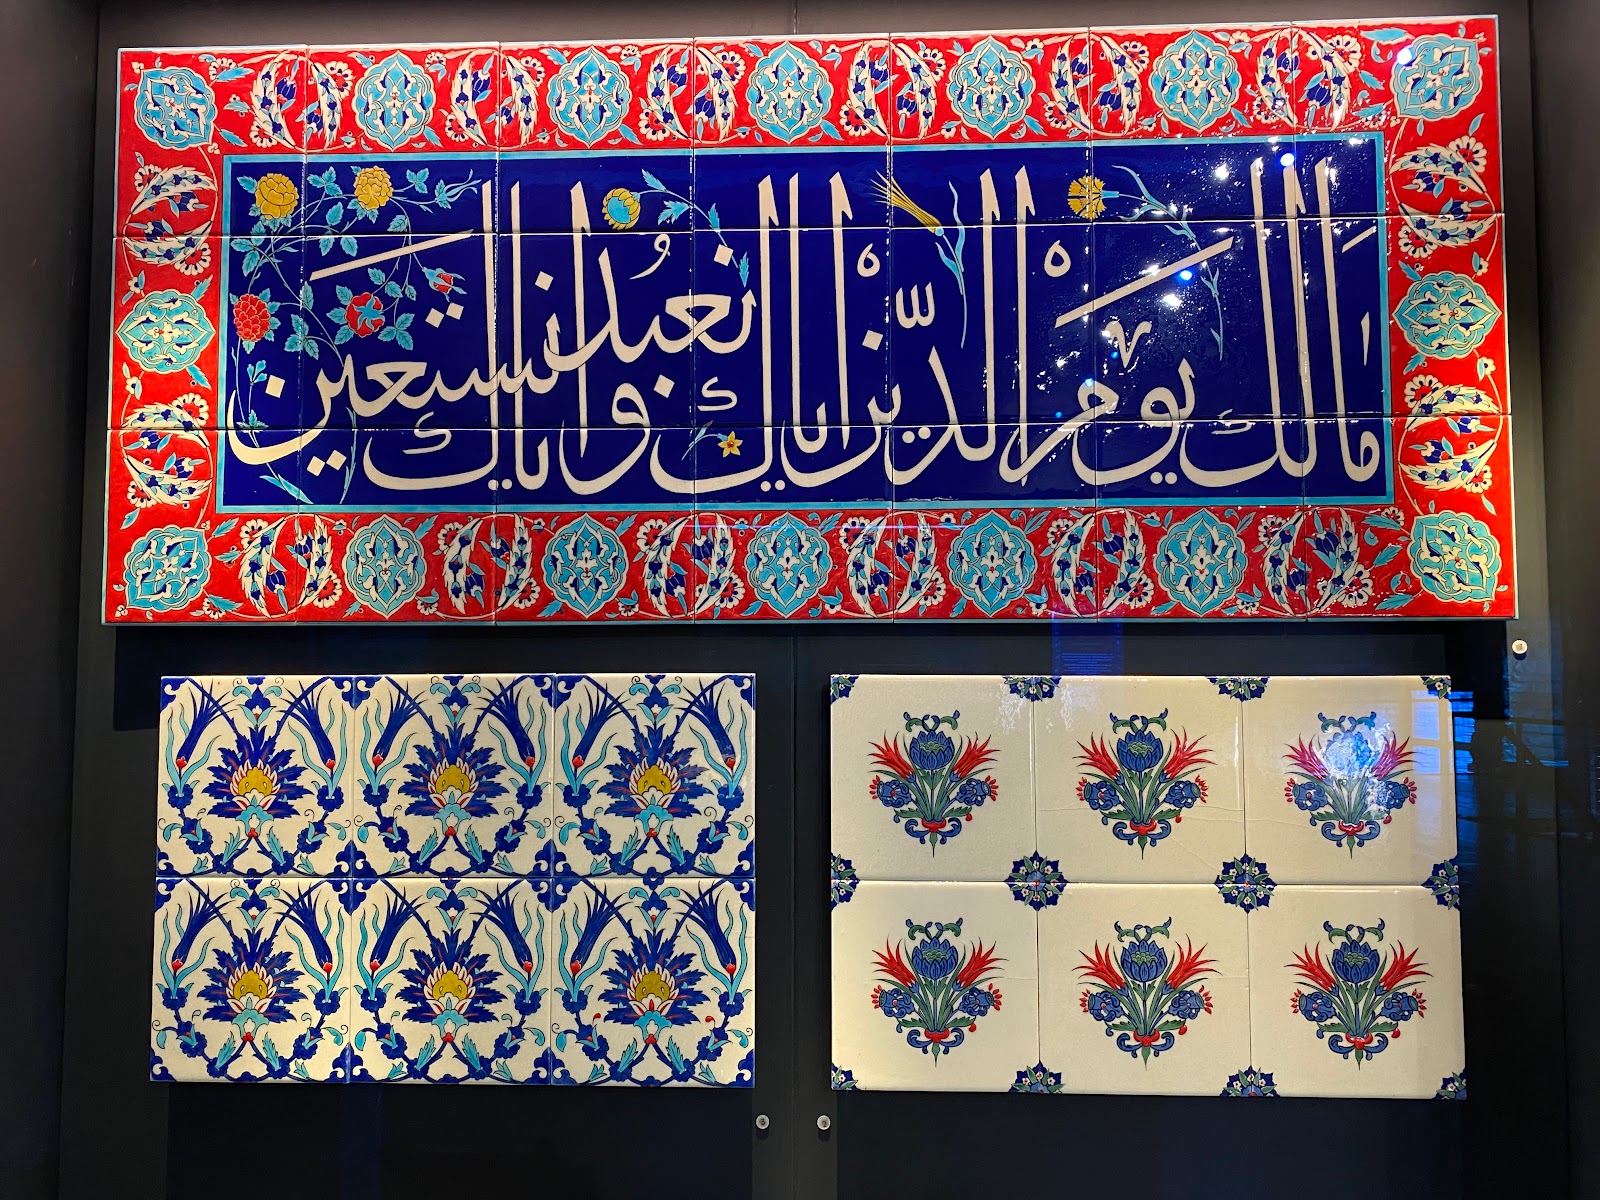 مالك يوم الدّين اياك نعبدُ واياك نستعين